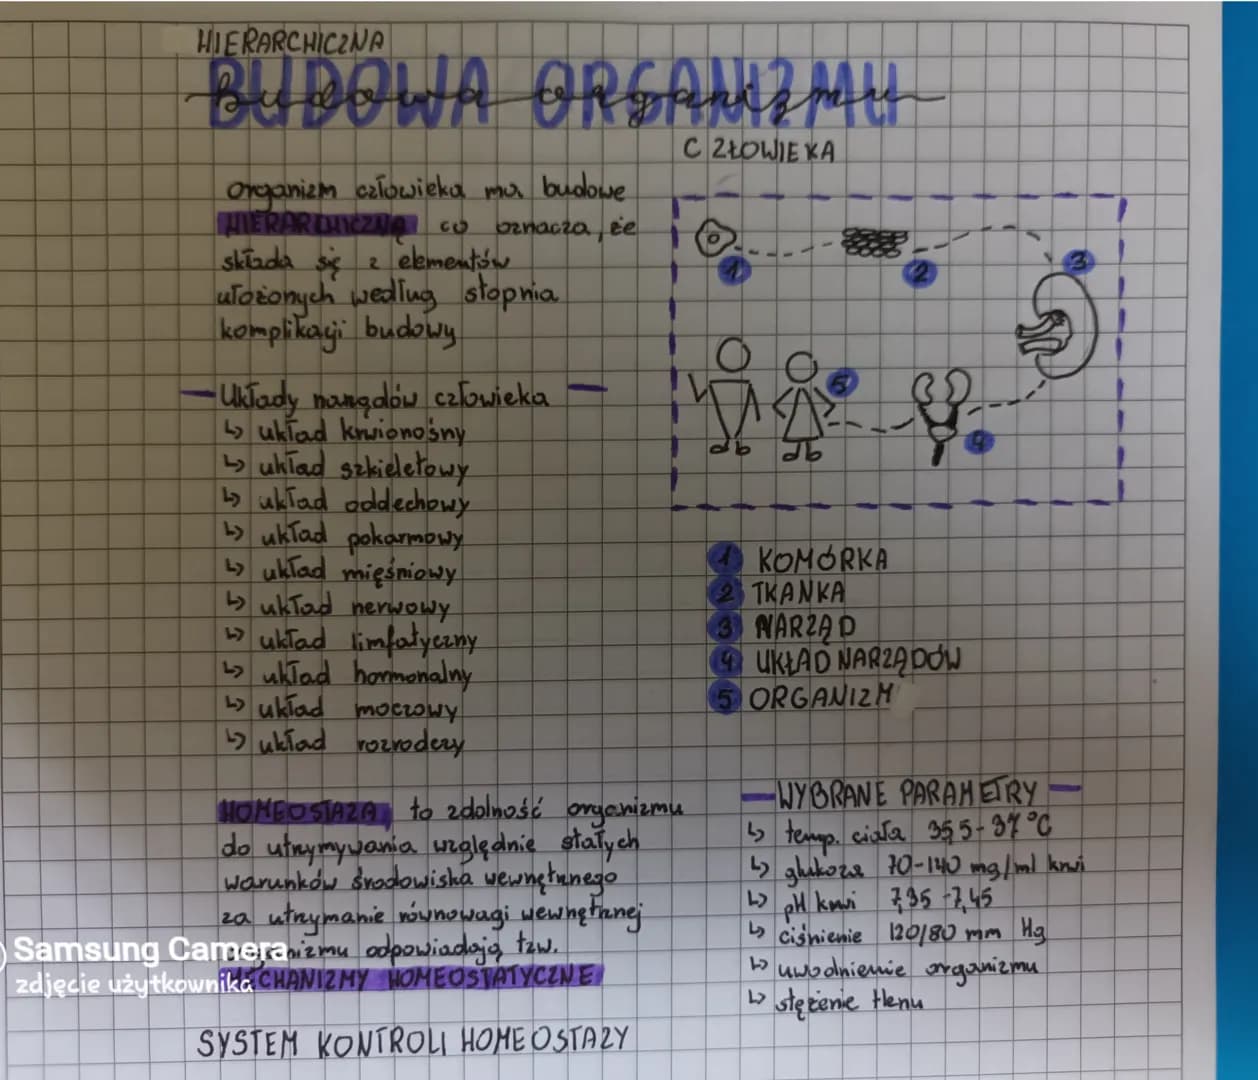 HIERARCHICZNA
BUDOWA ORGANIZMU
Budowa organizmu
CZŁOWIEKA
organizm człowieka ma budowe
HIERARCHICZNĄ co oznacza, że
składa się z elementów
ułożonych według stopnia
komplikacji budowy
Układy narządów człowieka
↳ układ krwionośny
↳ układ szkieletowy
↳ układ oddechowy
↳ układ pokarmowy
↳ układ mięśniowy
↳ układ nerwowy
↳ układ limfatyczny
↳ układ hormonalny
↳ układ moczowy
↳ układ rozrodczy
1
2
3
5
4
1 KOMÓRKA
2 TKANKA
3 NARZĄD
4 UKŁAD NARZĄDÓW
5 ORGANIZM
HOMEOSTAZA to zdolność organizmu
do utrzymywania względnie stałych
warunków środowiska wewnętrznego
za utrzymanie równowagi wewnętrznej
organizmu odpowiadają tzw.
MECHANIZMY HOMEOSTATYCZNE
WYBRANE PARAMETRY
↳ temp. ciała 35,5-37°C
↳ glukoza 70-140 mg/ml krwi
↳ pH krwi 7,35-7,45
↳ ciśnienie 120/80 mm Hg
↳ uwodnienie organizmu
↳ stężenie tlenu
SYSTEM KONTROLI HOMEOSTAZY
Samsung Camera
zdjęcie użytkownika